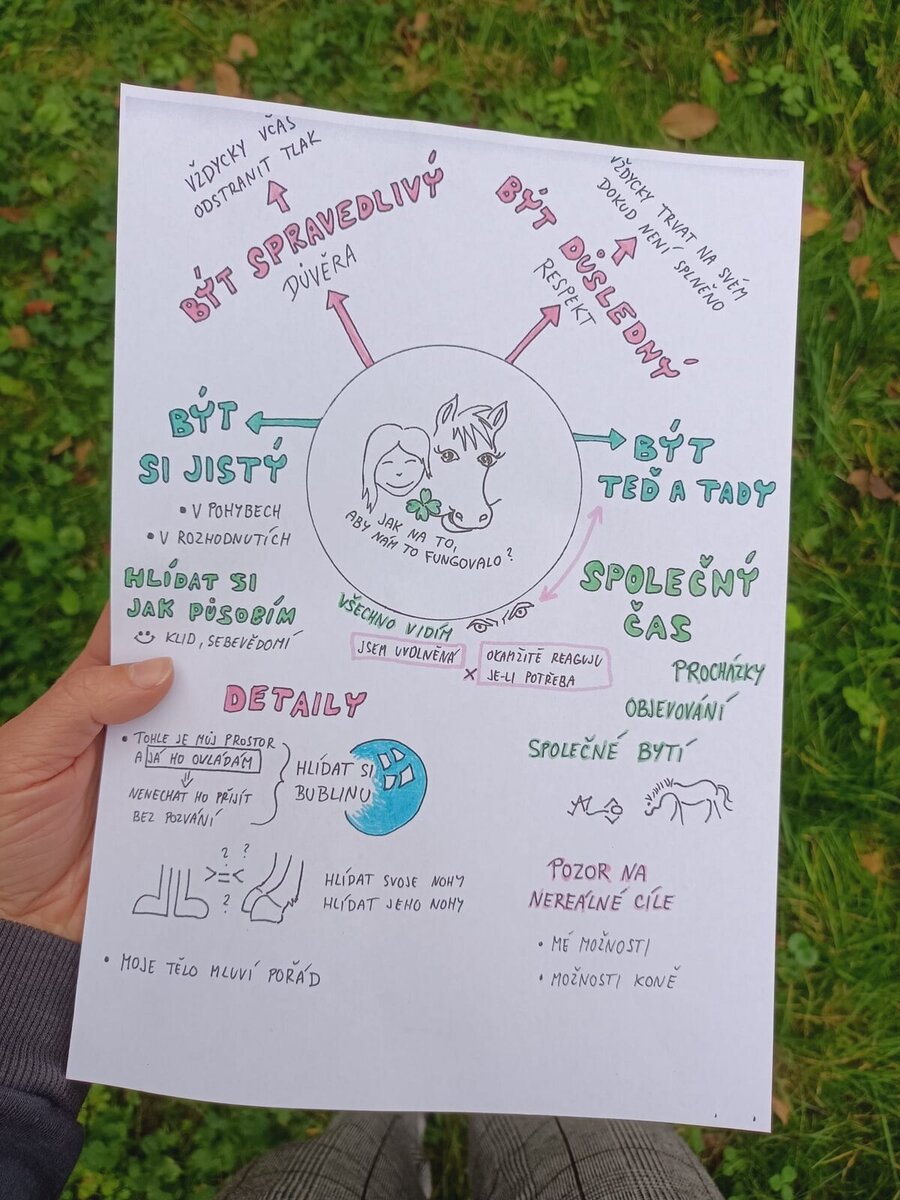 VŽDYCKY VČAS
ODSTRANIT TLAK
BÝT SPRAVEDLIVÝ
DŮVĚRA
VŽDYCKY TRVAT NA SVÉM
DOKUD NENÍ SPLNĚNO
BÝT DŮSLEDNÝ
RESPEKT
BÝT
SI JISTÝ
• V POHYBECH
• V ROZHODNUTÍCH
HLÍDAT SI
JAK PŮSOBÍM
KLID, SEBEVĚDOMÍ
JAK NA TO,
ABY NÁM TO FUNGOVALO?
BÝT
TEĎ A TADY
VŠECHNO VIDÍM
JSEM UVOLNĚNÁ
×
OKAMŽITĚ REAGUJU
JE-LI POTŘEBA
SPOLEČNÝ
ČAS
PROCHÁZKY
OBJEVOVÁNÍ
SPOLEČNÉ BYTÍ
DETAILY
• TOHLE JE MŮJ PROSTOR
A JÁ HO OVLÁDÁM
⇓
NENECHAT HO PŘIJÍT
BEZ POZVÁNÍ
HLÍDAT SI
BUBLINU
? ?
>=<
?
HLÍDAT SVOJE NOHY
HLÍDAT JEHO NOHY
• MOJE TĚLO MLUVÍ POŘÁD
POZOR NA
NEREÁLNÉ CÍLE
• MÉ MOŽNOSTI
• MOŽNOSTI KONĚ